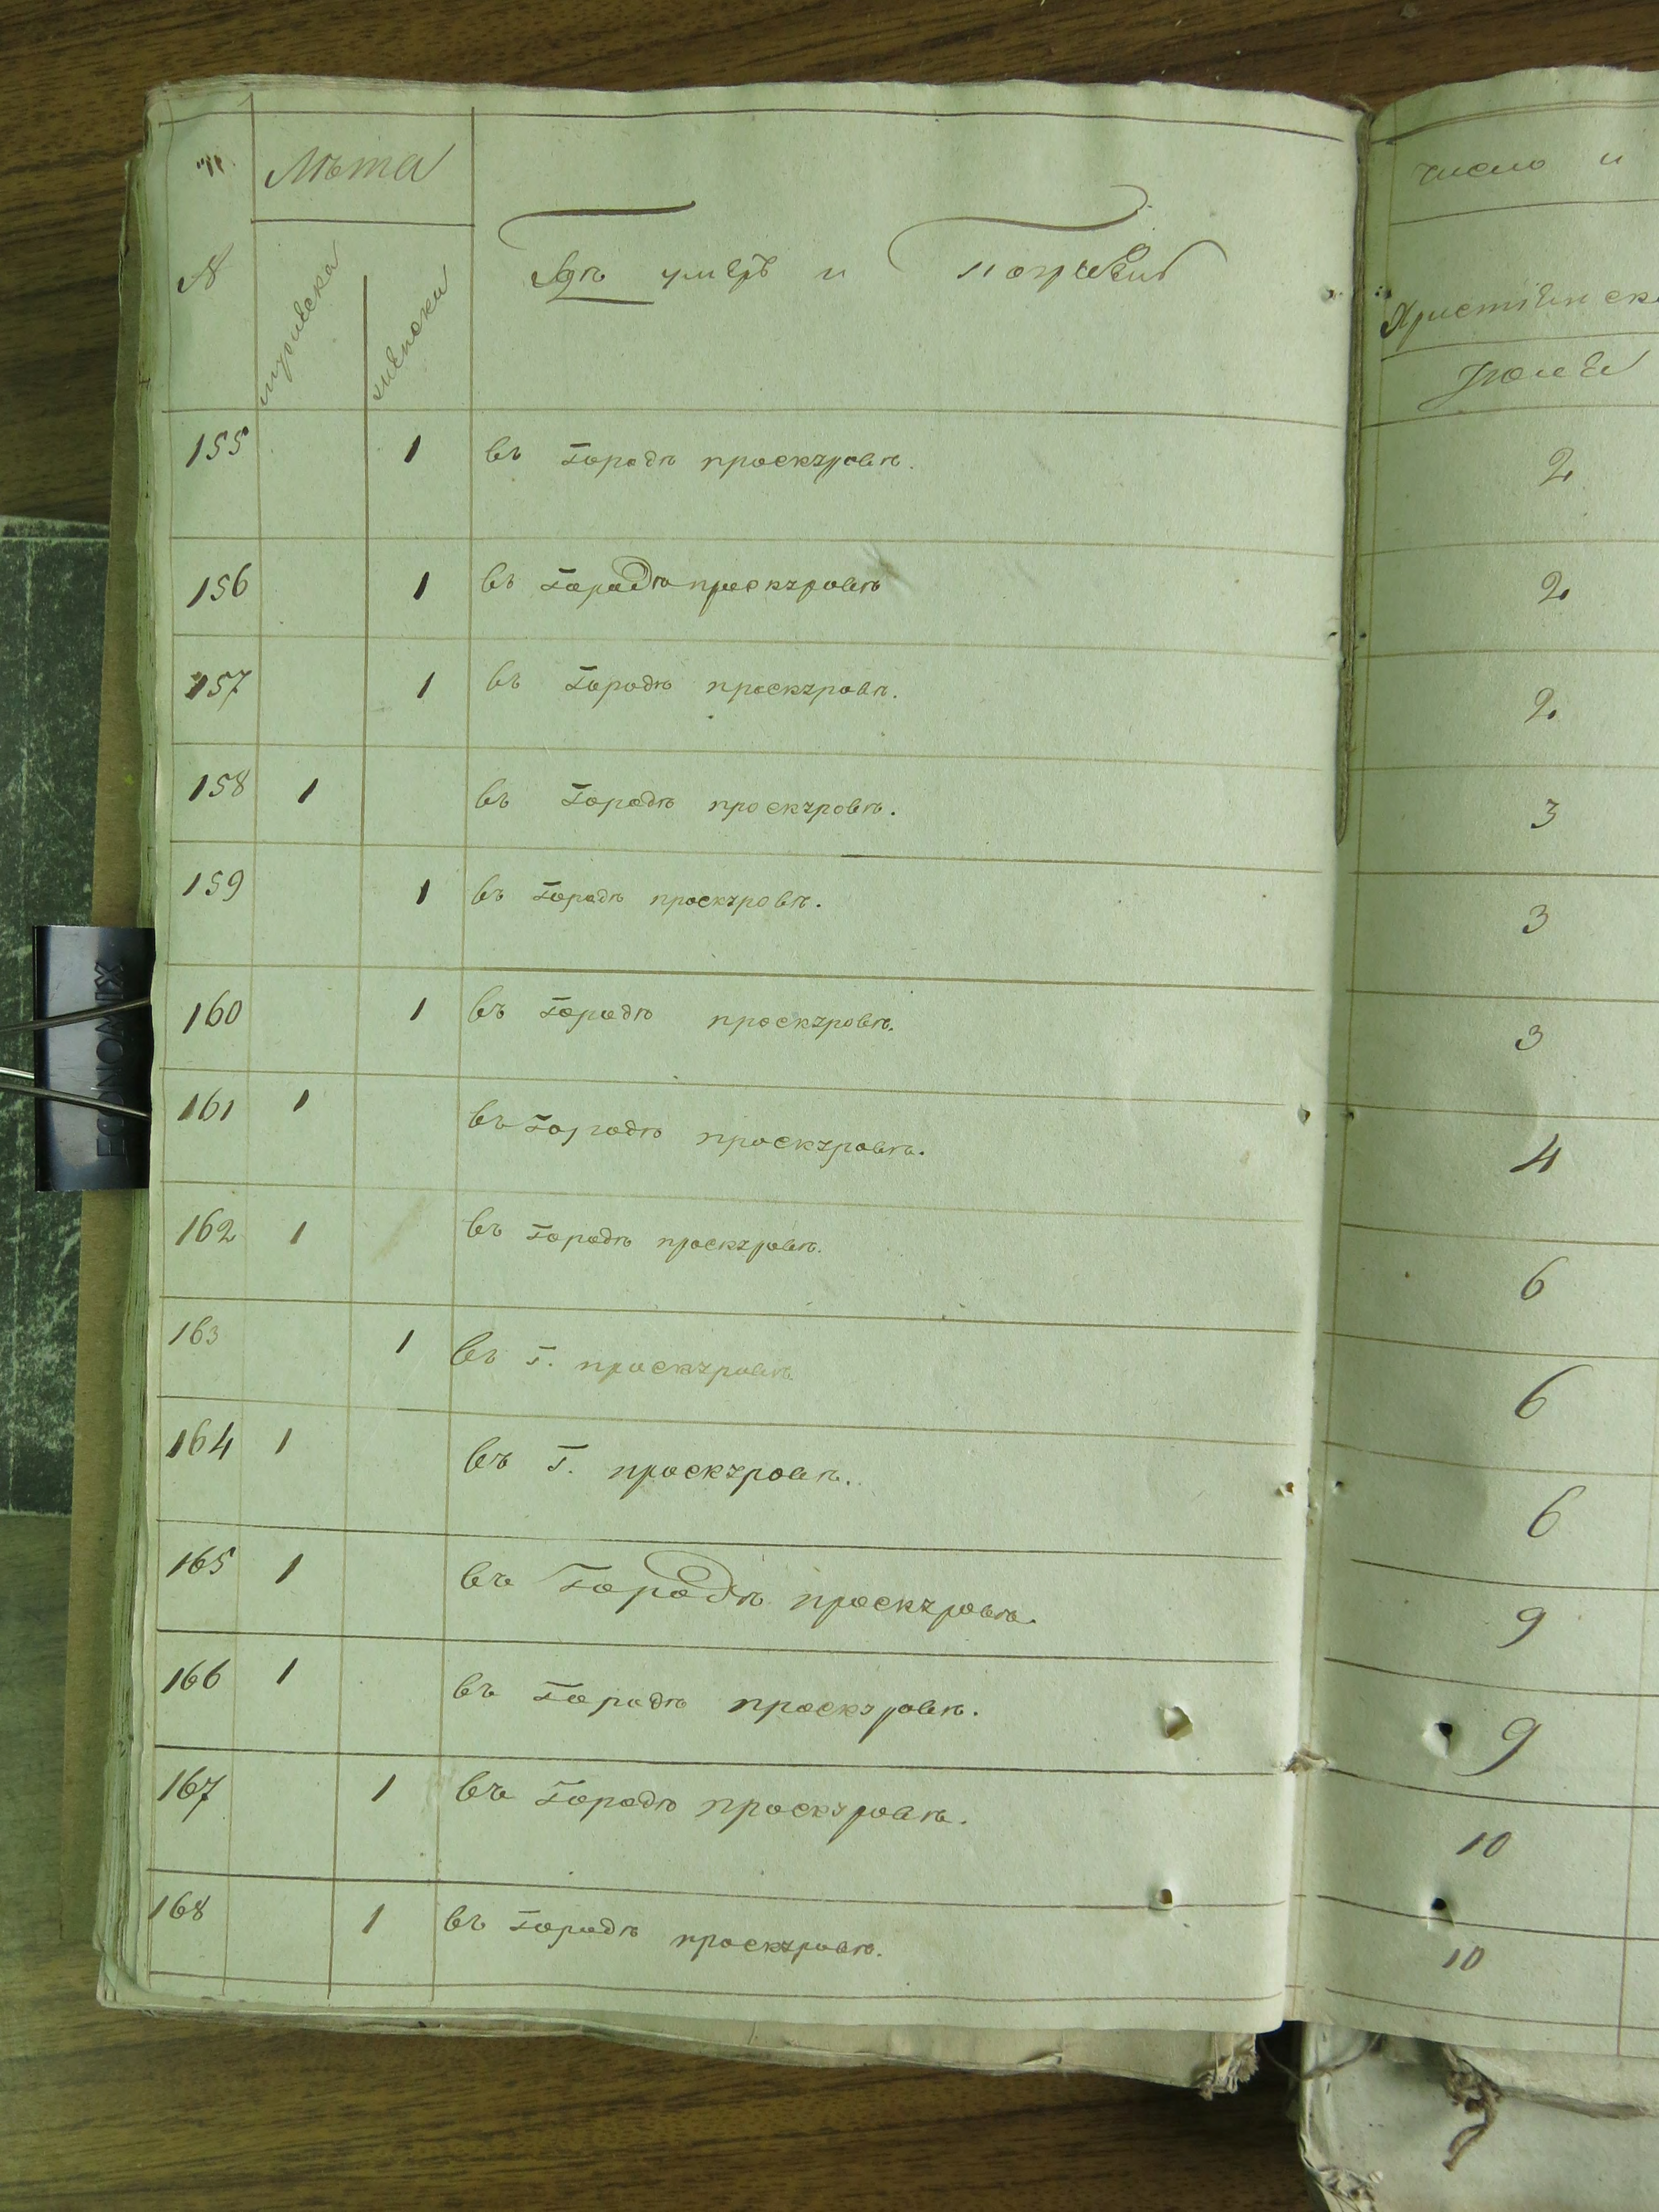 Лѣта
№
мужеска
женска
Гдѣ умеръ и погребенъ
155 1 въ городѣ проскуровѣ.
156 1 въ городѣ проскуровѣ
157 1 въ городѣ проскуровѣ.
158 1 въ городѣ проскуровѣ.
159 1 въ городѣ проскуровѣ.
160 1 въ городѣ проскуровѣ.
161 1 въ городѣ проскуровѣ.
162 1 въ городѣ проскуровѣ.
163 1 въ г. проскуровѣ
164 1 въ г. проскуровѣ.
165 1 въ городѣ проскуровѣ.
166 1 въ городѣ проскуровѣ.
167 1 въ городѣ проскуровѣ.
168 1 въ городѣ проскуровѣ.
число и
Христіанск
Іюля
2
2
2
3
3
3
4
6
6
6
9
9
10
10
ECONOMIX